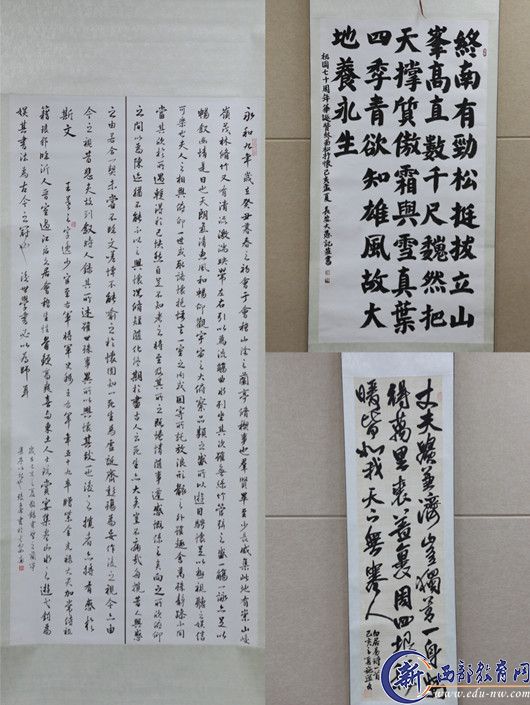 永和九年歲在癸丑暮春之初會于會稽山陰之蘭亭脩稧事也群賢畢至少長咸集此地有崇山峻
嶺茂林脩竹又有清流激湍映帶左右引以為流觴曲水列坐其次雖無絲竹管弦之盛一觴一詠亦足以
暢敘幽情是日也天朗氣清惠風和暢仰觀宇宙之大俯察品類之盛所以遊目騁懷足以極視聽之娛信
可樂也夫人之相與俯仰一世或取諸懷抱悟言一室之內或因寄所託放浪形骸之外雖趣舍萬殊靜躁不同
當其欣於所遇暫得於己快然自足不知老之將至及其所之既惓情隨事遷感慨係之矣向之所欣俛仰
之間以為陳迹猶不能不以之興懷況脩短隨化終期於盡古人云死生亦大矣豈不痛哉每攬昔人興感
之由若合一契未嘗不臨文嗟悼不能喻之於懷固知一死生為虛誕齊彭殤為妄作後之視今亦由
今之視昔悲夫故列敘時人錄其所述雖世殊事異所以興懷其致一也後之攬者亦將有感於
斯文
王羲之字逸少官至右軍將軍
終南有勁松挺拔立山
峯高直數千尺巍然把
天撑質傲霜與雪真葉
四季青欲知雄風故大
地養永生
祝國七十周年華誕 己亥孟夏 長安
丈夫貴兼濟豈獨善一身安
得萬里裘蓋裹周四垠穩
暖皆如我天下無寒人
白居易詩一首
己亥
新
西部教育网
www.edu-nw.com